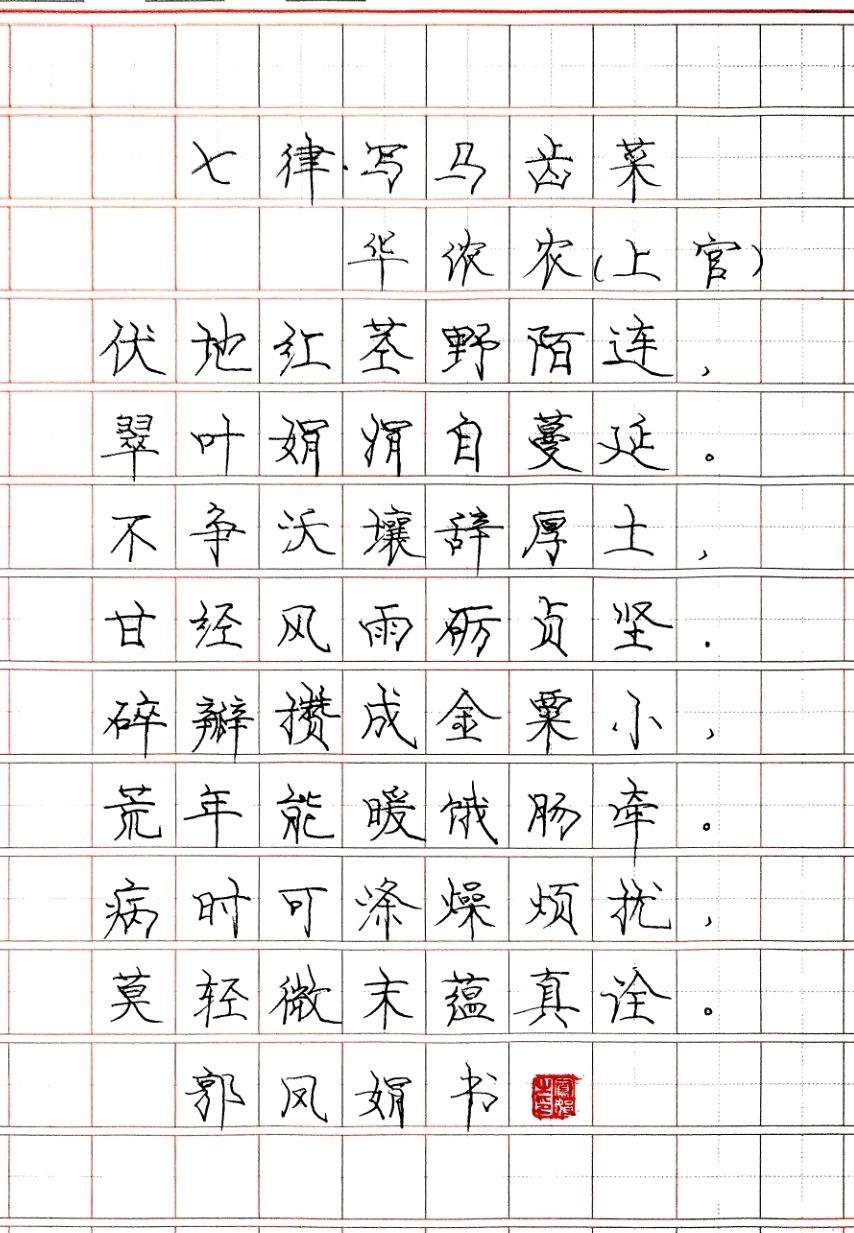 七律·写马齿菜
华侬农(上官)
伏地红茎野陌连，
翠叶娟娟自蔓延。
不争沃壤辞厚土，
甘经风雨砺贞坚.
碎瓣攒成金粟小，
荒年能暖饿肠牵。
病时可涤燥烦扰，
莫轻微末蕴真诠。
郭凤娟书